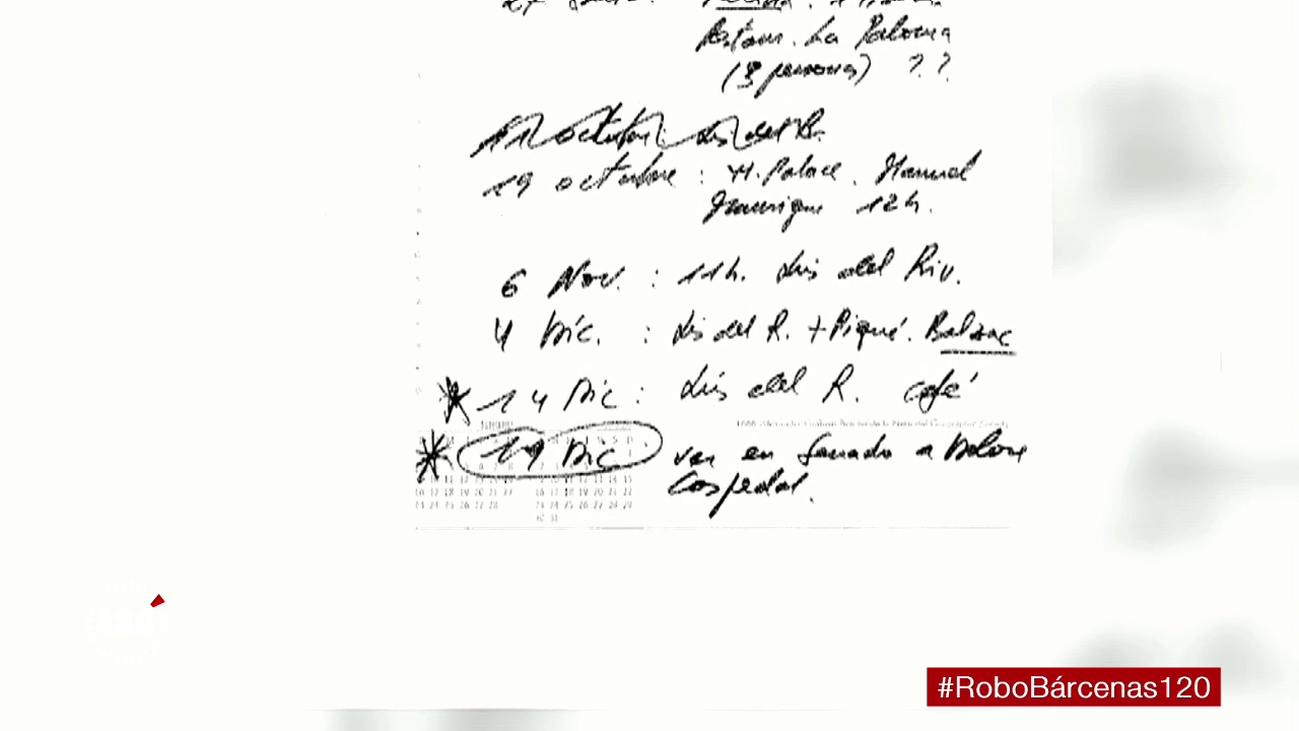 Restaur. La Paloma
(3 personas) ??
11 octubre : Luis del R.
19 octubre : H. Palace. Manuel
Manrique 12h.
6 Nov. : 11h. Luis del Riv.
4 Dic. : Luis del R. + Piqué. Balzac
14 Dic : Luis del R. café
19 Dic ver en Senado a Dolores
Cospedal.
#RoboBárcenas120